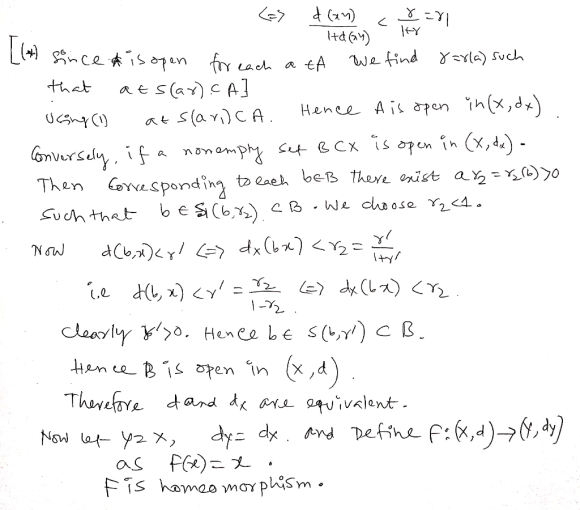 <=> d(x,y) / 1+d(x,y) < r / 1+r = r1
[(*) Since A is open for each a ∈ A We find r=r(a) such
that a ∈ S(a,r) ⊂ A]
Using (1) a ∈ S(a,r1) ⊂ A. Hence A is open in (X,dx)
Conversely, if a nonempty set B ⊂ X is open in (X,dx).
Then Corresponding to each b∈B there exist a r2 = r2(b)>0
Such that b ∈ S(b,r2) ⊂ B. We choose r2<1.
Now d(b,x)<r' <=> dx(b,x) < r2 = r' / 1+r'
i.e d(b,x) < r' = r2 / 1-r2 <=> dx(b,x) < r2.
Clearly r'>0. Hence b ∈ S(b,r') ⊂ B.
Hence B is open in (X,d).
Therefore d and dx are equivalent.
Now let Y=X, dy = dx. And Define f:(X,d)→(Y,dy)
as f(x)=x.
F is homeomorphism.